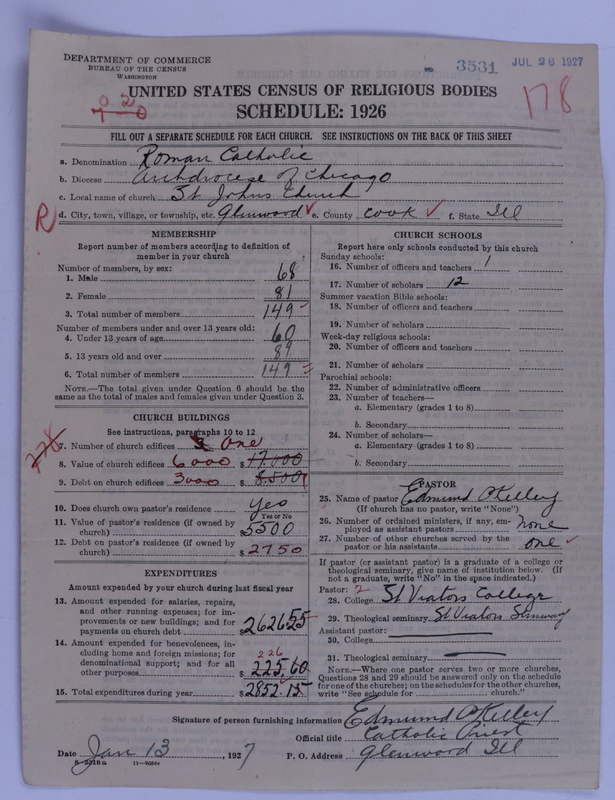 DEPARTMENT OF COMMERCE
BUREAU OF THE CENSUS
WASHINGTON
3531
JUL 26 1927
UNITED STATES CENSUS OF RELIGIOUS BODIES
SCHEDULE: 1926
178
FILL OUT A SEPARATE SCHEDULE FOR EACH CHURCH. SEE INSTRUCTIONS ON THE BACK OF THIS SHEET
a. Denomination Roman Catholic
b. Diocese Archdiocese of Chicago
c. Local name of church St Johns Church
R d. City, town, village, or township, etc. Glenwood e. County Cook f. State Ill
MEMBERSHIP
Report number of members according to definition of
member in your church
Number of members, by sex:
1. Male 68
2. Female 81
3. Total number of members 149
Number of members under and over 13 years old:
4. Under 13 years of age 60
5. 13 years old and over 89
6. Total number of members 149
NOTE.—The total given under Question 6 should be the
same as the total of males and females given under Question 3.
CHURCH BUILDINGS
See instructions, paragraphs 10 to 12
7. Number of church edifices One
8. Value of church edifices 6000 $ 17.000
9. Debt on church edifices 3000 $ 8.500
10. Does church own pastor's residence Yes
Yes or No
11. Value of pastor's residence (if owned by
church) $ 5500
12. Debt on pastor's residence (if owned by
church) $ 2750
EXPENDITURES
Amount expended by your church during last fiscal year
13. Amount expended for salaries, repairs,
and other running expenses; for im-
provements or new buildings; and for
payments on church debt $ 2626.55
14. Amount expended for benevolences, in-
cluding home and foreign missions; for
denominational support; and for all
other purposes $ 225.60
226
15. Total expenditures during year $ 2852.15
CHURCH SCHOOLS
Report here only schools conducted by this church
Sunday schools:
16. Number of officers and teachers 1
17. Number of scholars 12
Summer vacation Bible schools:
18. Number of officers and teachers
19. Number of scholars
Week-day religious schools:
20. Number of officers and teachers
21. Number of scholars
Parochial schools:
22. Number of administrative officers
23. Number of teachers—
a. Elementary (grades 1 to 8)
b. Secondary
24. Number of scholars—
a. Elementary (grades 1 to 8)
b. Secondary
PASTOR
25. Name of pastor Edmund O'Kelley
(If church has no pastor, write "None")
26. Number of ordained ministers, if any, em-
ployed as assistant pastors none
27. Number of other churches served by the
pastor or his assistants one
If pastor (or assistant pastor) is a graduate of a college or
theological seminary, give name of institution below. (If
not a graduate, write "No" in the space indicated.)
Pastor: 2
28. College St Viators College
29. Theological seminary St Viators Seminary
Assistant pastor:
30. College
31. Theological seminary
NOTE.—Where one pastor serves two or more churches,
Questions 28 and 29 should be answered only on the schedule
for one of the churches; on the schedules for the other churches,
write "See schedule for ........ church."
Signature of person furnishing information Edmund O'Kelley
Official title Catholic Priest
Date Jan 13, 1927 P. O. Address Glenwood Ill